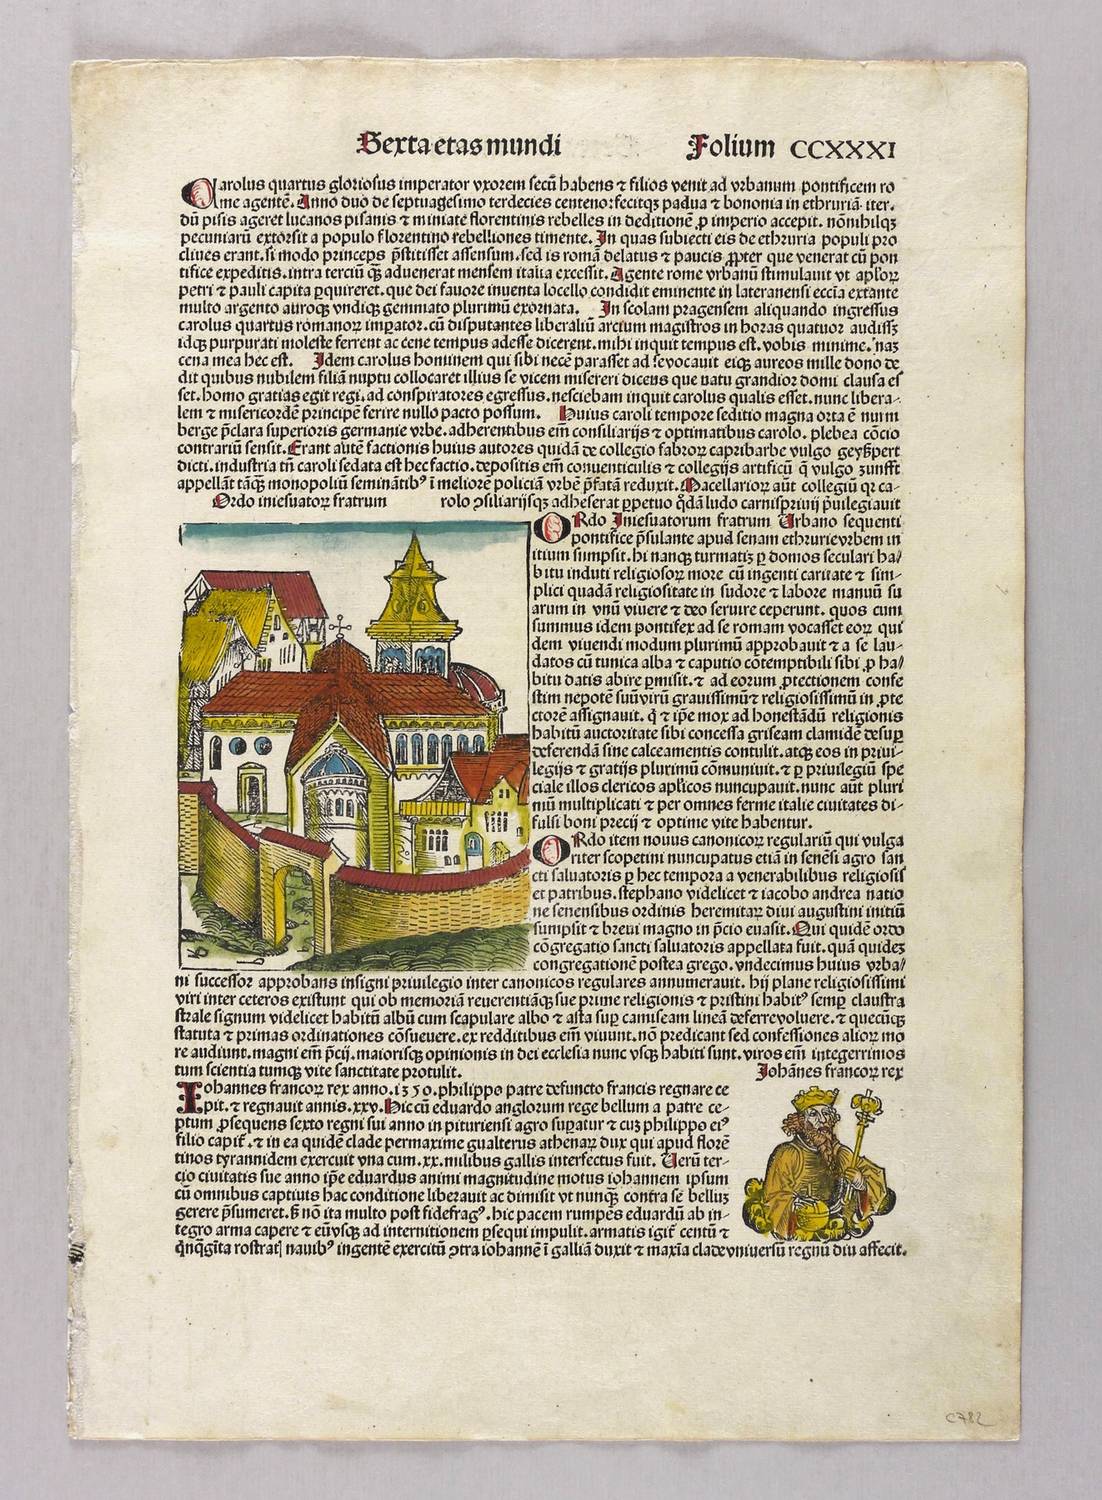 Sexta etas mundi Folium CCXXXI
Carolus quartus gloriosus imperator vxorem secū habens ⁊ filios venit ad vrbanum pontificem ro
me agentē. Anno duo de septuagesimo terdecies centeno: fecitqꝫ padua ⁊ bononia in ethruriā iter.
dū pisis ageret lucanos pisanis ⁊ miniate florentinis rebelles in deditionē ꝓ imperio accepit. nōnihilqꝫ
pecuniarū extorsit a populo florentino rebelliones timente. In quas subiecti eis de ethruria populi pro
cliues erant. si modo princeps p̄stitisset assensum. sed is romā delatus ⁊ paucis ꝓpter que venerat cū pon
tifice expeditis. intra terciū qꝫ̄ aduenerat mensem italia excessit. Agente rome vrbanū stimulauit vt apl'oꝝ
petri ⁊ pauli capita ꝑquireret. que dei fauore inuenta locello condidit eminente in lateranensi eccīa extante
multo argento auroqꝫ vndiqꝫ gemmato plurimū exornata. In scolam pragensem aliquando ingressus
carolus quartus romanoꝝ imꝑator. cū disputantes liberaliū arcium magistros in horas quatuor audissꝫ
idqꝫ purpurati moleste ferrent ac cene tempus adesse dicerent. mihi inquit tempus est. vobis minime. naꝫ
cena mea hec est. Idem carolus hominem qui sibi necē parasset ad se vocauit eiqꝫ aureos mille dono de
dit quibus nubilem filiā nuptu collocaret illius se vicem misereri dicens que natu grandior domi clausa es
set. homo gratias egit regi. ad conspiratores egressus. nesciebam inquit carolus qualis esset. nunc libera-
lem ⁊ misericordē principē ferire nullo pacto possum. Huius caroli tempore seditio magna orta ē nurm
berge p̄clara superioris germanie vrbe. adherentibus em̄ consiliarijs ⁊ optimatibus carolo. plebea cōcio
contrariū sensit. Erant autē factionis huius autores quidā de collegio fabroꝝ capribarbe vulgo geyßpert
dicti. industria tn̄ caroli sedata est hec factio. depositis em̄ conuenticulis ⁊ collegijs artificū q̄ vulgo zunfft
appellāt tāqꝫ monopoliū seminātibꝰ ī meliorē policiā vrbē p̄fatā reduxit. Macellarioꝝ aūt collegiū qꝛ ca-
Ordo iniesuatoꝝ fratrum rolo ꝯsiliarijsqꝫ adheserat ꝑpetuo q̄dā ludo carnispriuij p̄uilegiauit
ORdo Iniesuatorum fratrum Urbano sequenti
pontifice p̄sulante apud senam ethrurie vrbem in
itium sumpsit. hi nanqꝫ turmatiꝫ ꝑ domos seculari ha/
bitu induti religiosoꝝ more cū ingenti caritate ⁊ sim-
plici quadā religiositate in sudore ⁊ labore manuū su
arum in vnū viuere ⁊ deo seruire ceperunt. quos cum
summus idem pontifex ad se romam vocasset eoꝝ qui
dem viuendi modum plurimū approbauit ⁊ a se lau-
datos cū tunica alba ⁊ caputio cōtemptibili sibi ꝓ ha/
bitu datis abire ꝑmisit. ⁊ ad eorum ꝓtectionem confe
stim nepotē suū virū grauissimū ⁊ religiosissimū in ꝓte
ctorē assignauit. q̄ ⁊ ip̄e mox ad honestādū religionis
habitū auctoritate sibi concessa griseam clamidē desuꝑ
deferendā sine calceamentis contulit. atqꝫ eos in priui-
legijs ⁊ gratijs plurimū cōmuniuit. ⁊ ꝑ priuilegiū spe
ciale illos clericos apl'icos nuncupauit. nunc aūt pluri
mū multiplicati ⁊ per omnes ferme italie ciuitates di-
fusi boni precij ⁊ optime vite habentur.
ORdo item nouus canonicoꝝ regulariū qui vulga
riter scopetini nuncupatus etiā in senēsi agro san
cti saluatoris ꝑ hec tempora a venerabilibus religiosis
et patribus. stephano videlicet ⁊ iacobo andrea natio
ne senensibus ordinis heremitaꝝ diui augustini initiū
sumpsit ⁊ breui magno in p̄cio euasit. Qui quidē ordo
cōgregatio sancti saluatoris appellata fuit. quā quideꝫ
congregationē postea grego. vndecimus huius vrba/
ni successor approbans insigni priuilegio inter canonicos regulares annumerauit. hij plane religiosissimi
viri inter ceteros existunt qui ob memoriā reuerentiāqꝫ sue prime religionis ⁊ pristini habitꝰ semꝑ claustra
strale signum videlicet habitū albū cum scapulare albo ⁊ asta suꝑ camiseam lineā deferre voluere. ⁊ quecūqꝫ
statuta ⁊ primas ordinationes cōsueuere. ex redditibus em̄ viuunt. nō predicant sed confessiones alioꝝ mo
re audiunt. magni em̄ p̄cij. maiorisqꝫ opinionis in dei ecclesia nunc vsqꝫ habiti sunt. viros em̄ integerrimos
tum scientia tumqꝫ vite sanctitate protulit. Johānes francoꝝ rex
Iohannes francoꝝ rex anno. 1350. philippo patre defuncto francis regnare ce
pit. ⁊ regnauit annis. xxv. Hic cū eduardo anglorum rege bellum a patre ce-
ptum ꝓsequens sexto regni sui anno in pituriensi agro suꝑatur ⁊ cuꝫ philippo eiꝰ
filio capit̄. ⁊ in ea quidē clade permaxime gualterus athenaꝝ dux qui apud florē
tinos tyrannidem exercuit vna cum. xx. milibus gallis interfectus fuit. Uerū ter-
cio ciuitatis sue anno ip̄e eduardus animi magnitudine motus iohannem ipsum
cū omnibus captiuis hac conditione liberauit ac dimisit vt nunqꝫ contra se bellūꝫ
gerere p̄sumeret. s̄ nō ita multo post fidefragꝰ. hic pacem rumpēs eduardū ab in-
tegro arma capere ⁊ eū vsqꝫ ad internitionem ꝑsequi impulit. armatis igit̄ centū ⁊
q̄nqḡita rostratꝭ nauibꝰ ingentē exercitū ꝯtra iohannē ī galliā duxit ⁊ maxīa clade vniuersū regnū diu affecit.
C782